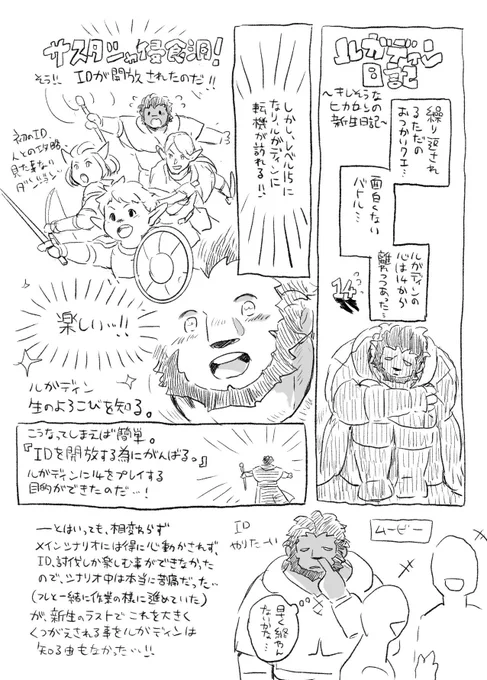 ルガディン
日記
〜きしそうなの
ヒカセンの
新生日記〜
繰り返され
るただの
おつかいクエ…
面白くない
バトル…
ルガディンの
心は14から
離れつつあった…
14
しかし、レベル15に
なり、ルガディンに
転機が訪れる!!
サスタシャ侵食洞!
そう!! IDが開放されたのだ!!
初のID
人との攻略
見た事ない
ダンジョン…
楽しいッ!!
ルガディン
生のよろこびを知る。
こうなってしまえば簡単。
『IDを開放する為にがんばる。』
ルガディンに14をプレイする
目的ができたのだ…!
ーとはいっても、相変わらず
メインシナリオには得に心動かされず、
ID、討伐しか楽しむ事ができなかった
ので、シナリオ中は本当に苦痛だった…
(フレと一緒に作業の様に進めていた)
が、新生のラストでこれを大きく
くつがえされる事をルガディンは
知る由もなかった…!!
ID
やりたーい
早く終わん
ないかな…
ムービー